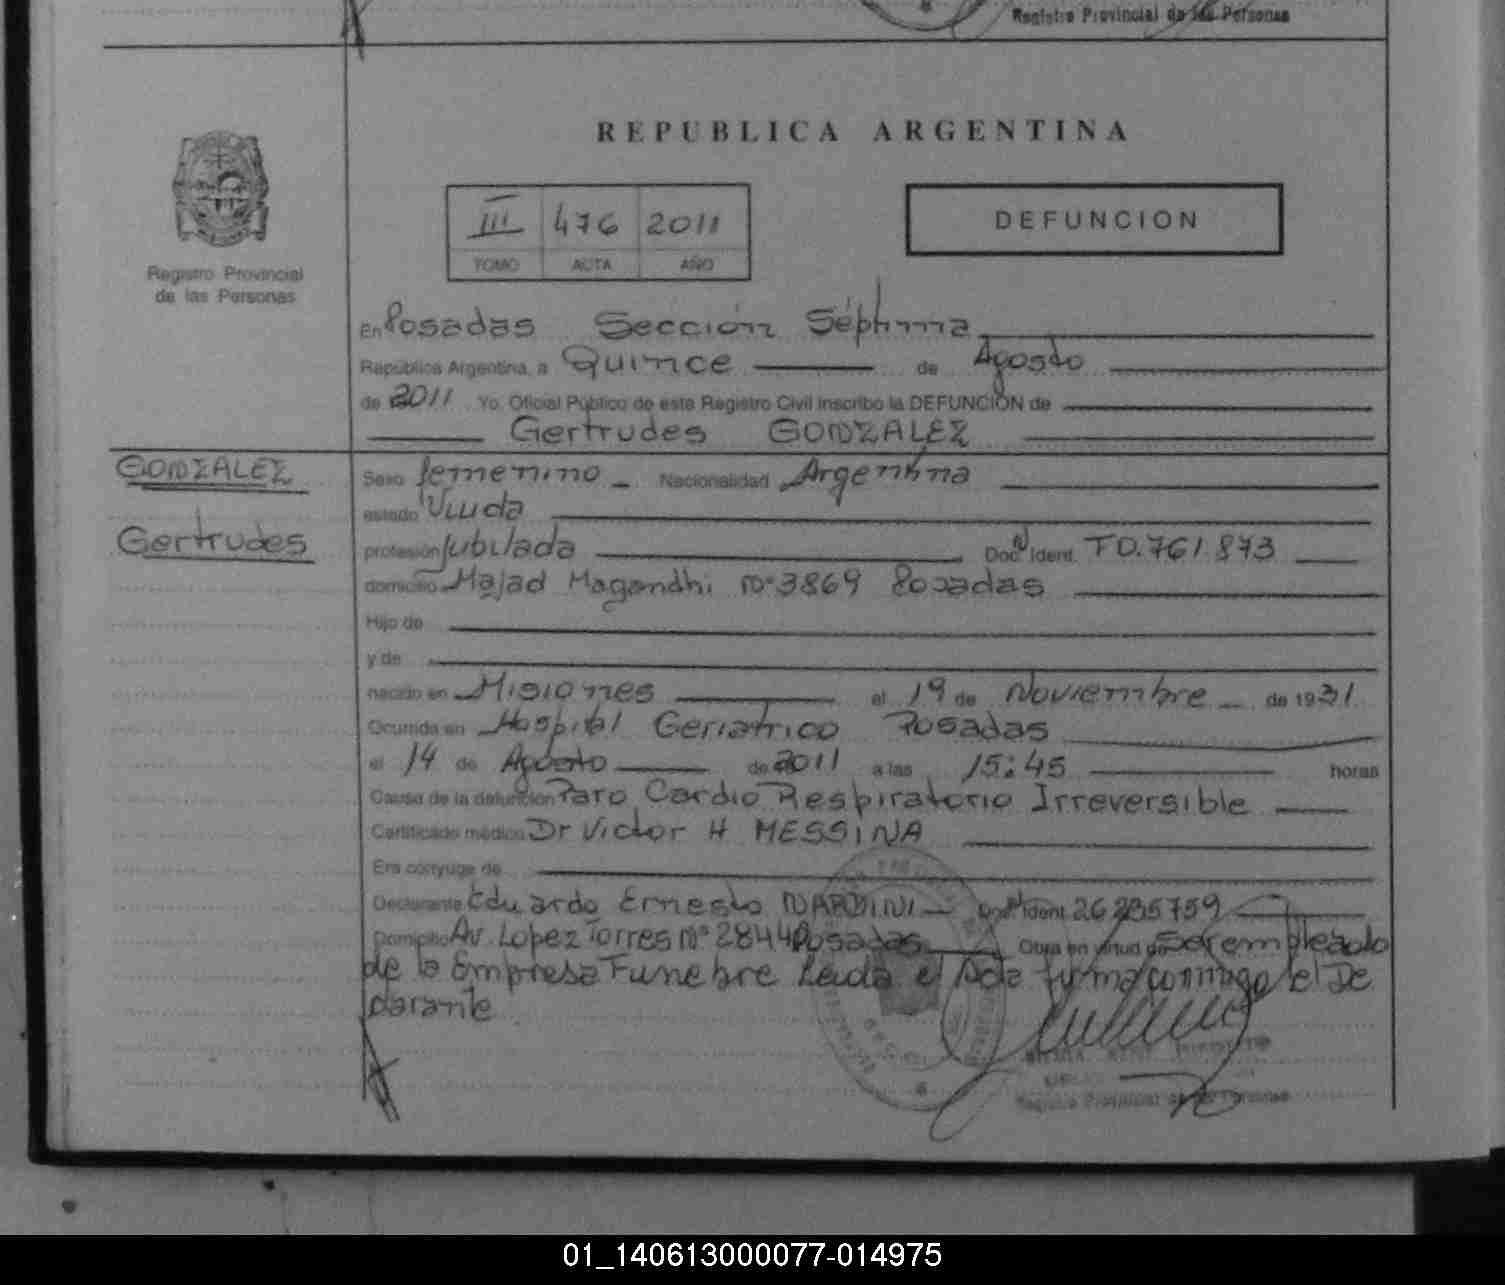 Registro Provincial de las Personas
REPUBLICA ARGENTINA
III 476 2011
TOMO ACTA AÑO
DEFUNCION
Registro Provincial
de las Personas
En Posadas Sección Séptima
República Argentina, a Quince de Agosto
de 2011 Yo, Oficial Público de este Registro Civil inscribo la DEFUNCIÓN de
Gertrudes GONZALEZ
GONZALEZ
Gertrudes
Sexo femenino Nacionalidad Argentina
estado Viuda
profesión Jubilada Doc. Ident. FO.761.873
domicilio Majad Magandhi Nº 3869 Posadas
Hijo de
y de
nacido en Misiones el 19 de Noviembre de 1931
Ocurrida en Hospital Geriatrico Posadas
el 14 de Agosto de 2011 a las 15:45 horas
Causa de la defunción Paro Cardio Respiratorio Irreversible
Certificado médico Dr Victor H MESSINA
Era cónyuge de
Declarante Eduardo Ernesto NARDINI Doc. Ident. 26235759
Domicilio Av. Lopez Torres Nº 2844 Posadas Obra en virtud de Ser empleado
de la Empresa Funebre Leida el Acta firma conmigo el De
clarante
Registro Provincial de las Personas
01_140613000077-014975